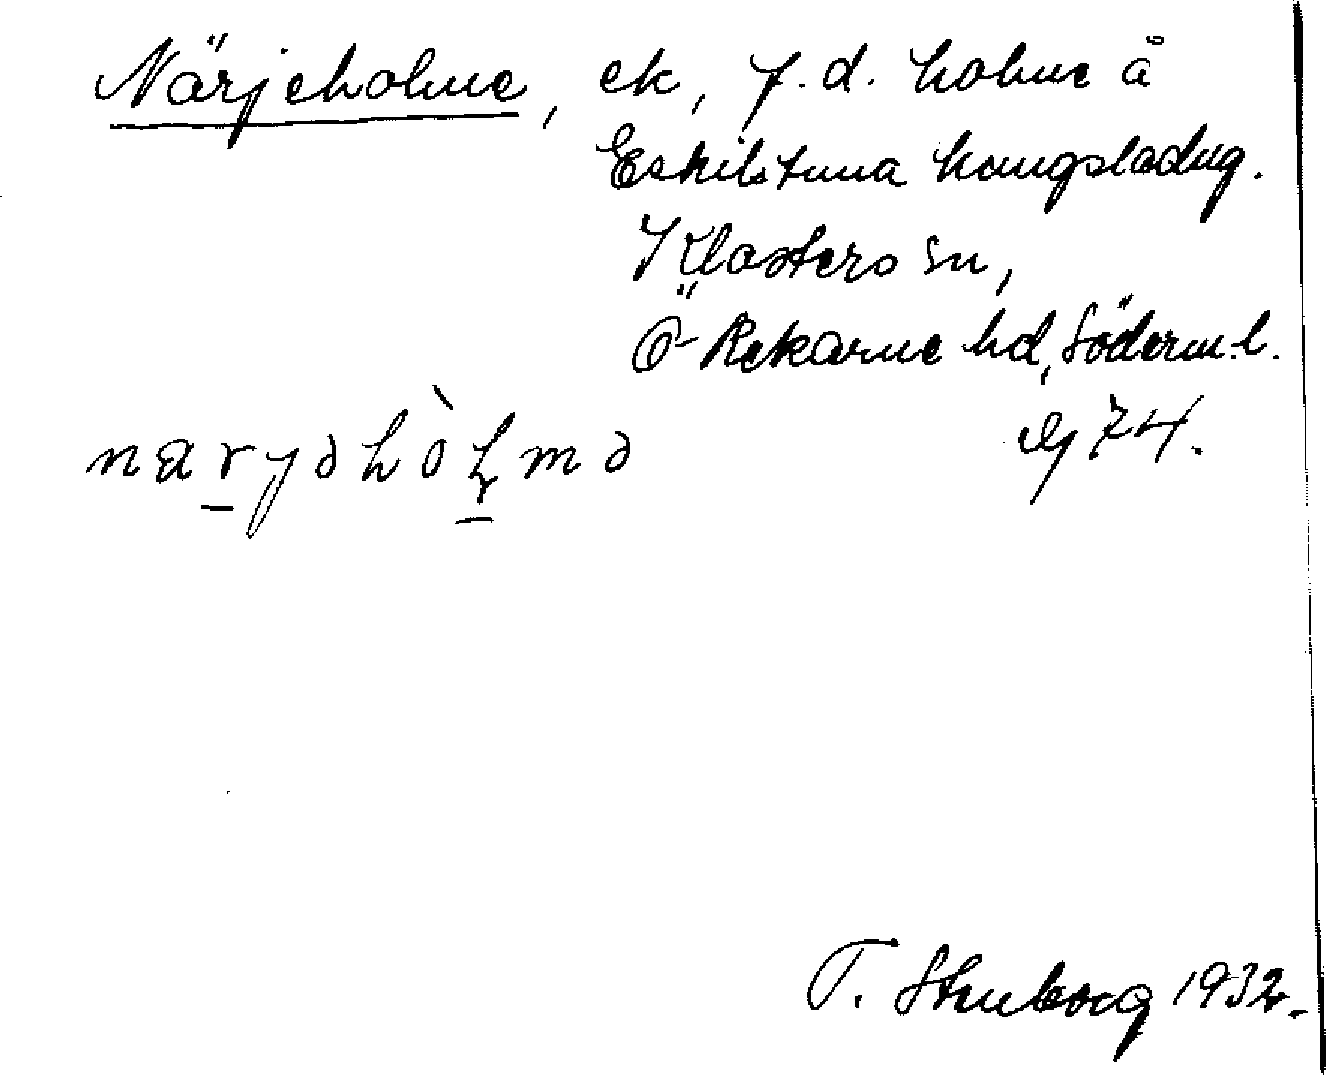 Närjeholme, ek, f.d. holme å
Eskilstuna kungsladug.
Klosters sn,
Ö Rekarne hd, Söderm. l.
74.
T. Stenborg 1932.